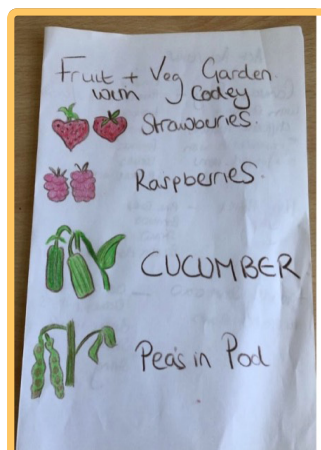 Fruit + Veg Garden.
with Codey
Strawburies.
Raspberries.
CUCUMBER
Pea's in Pod